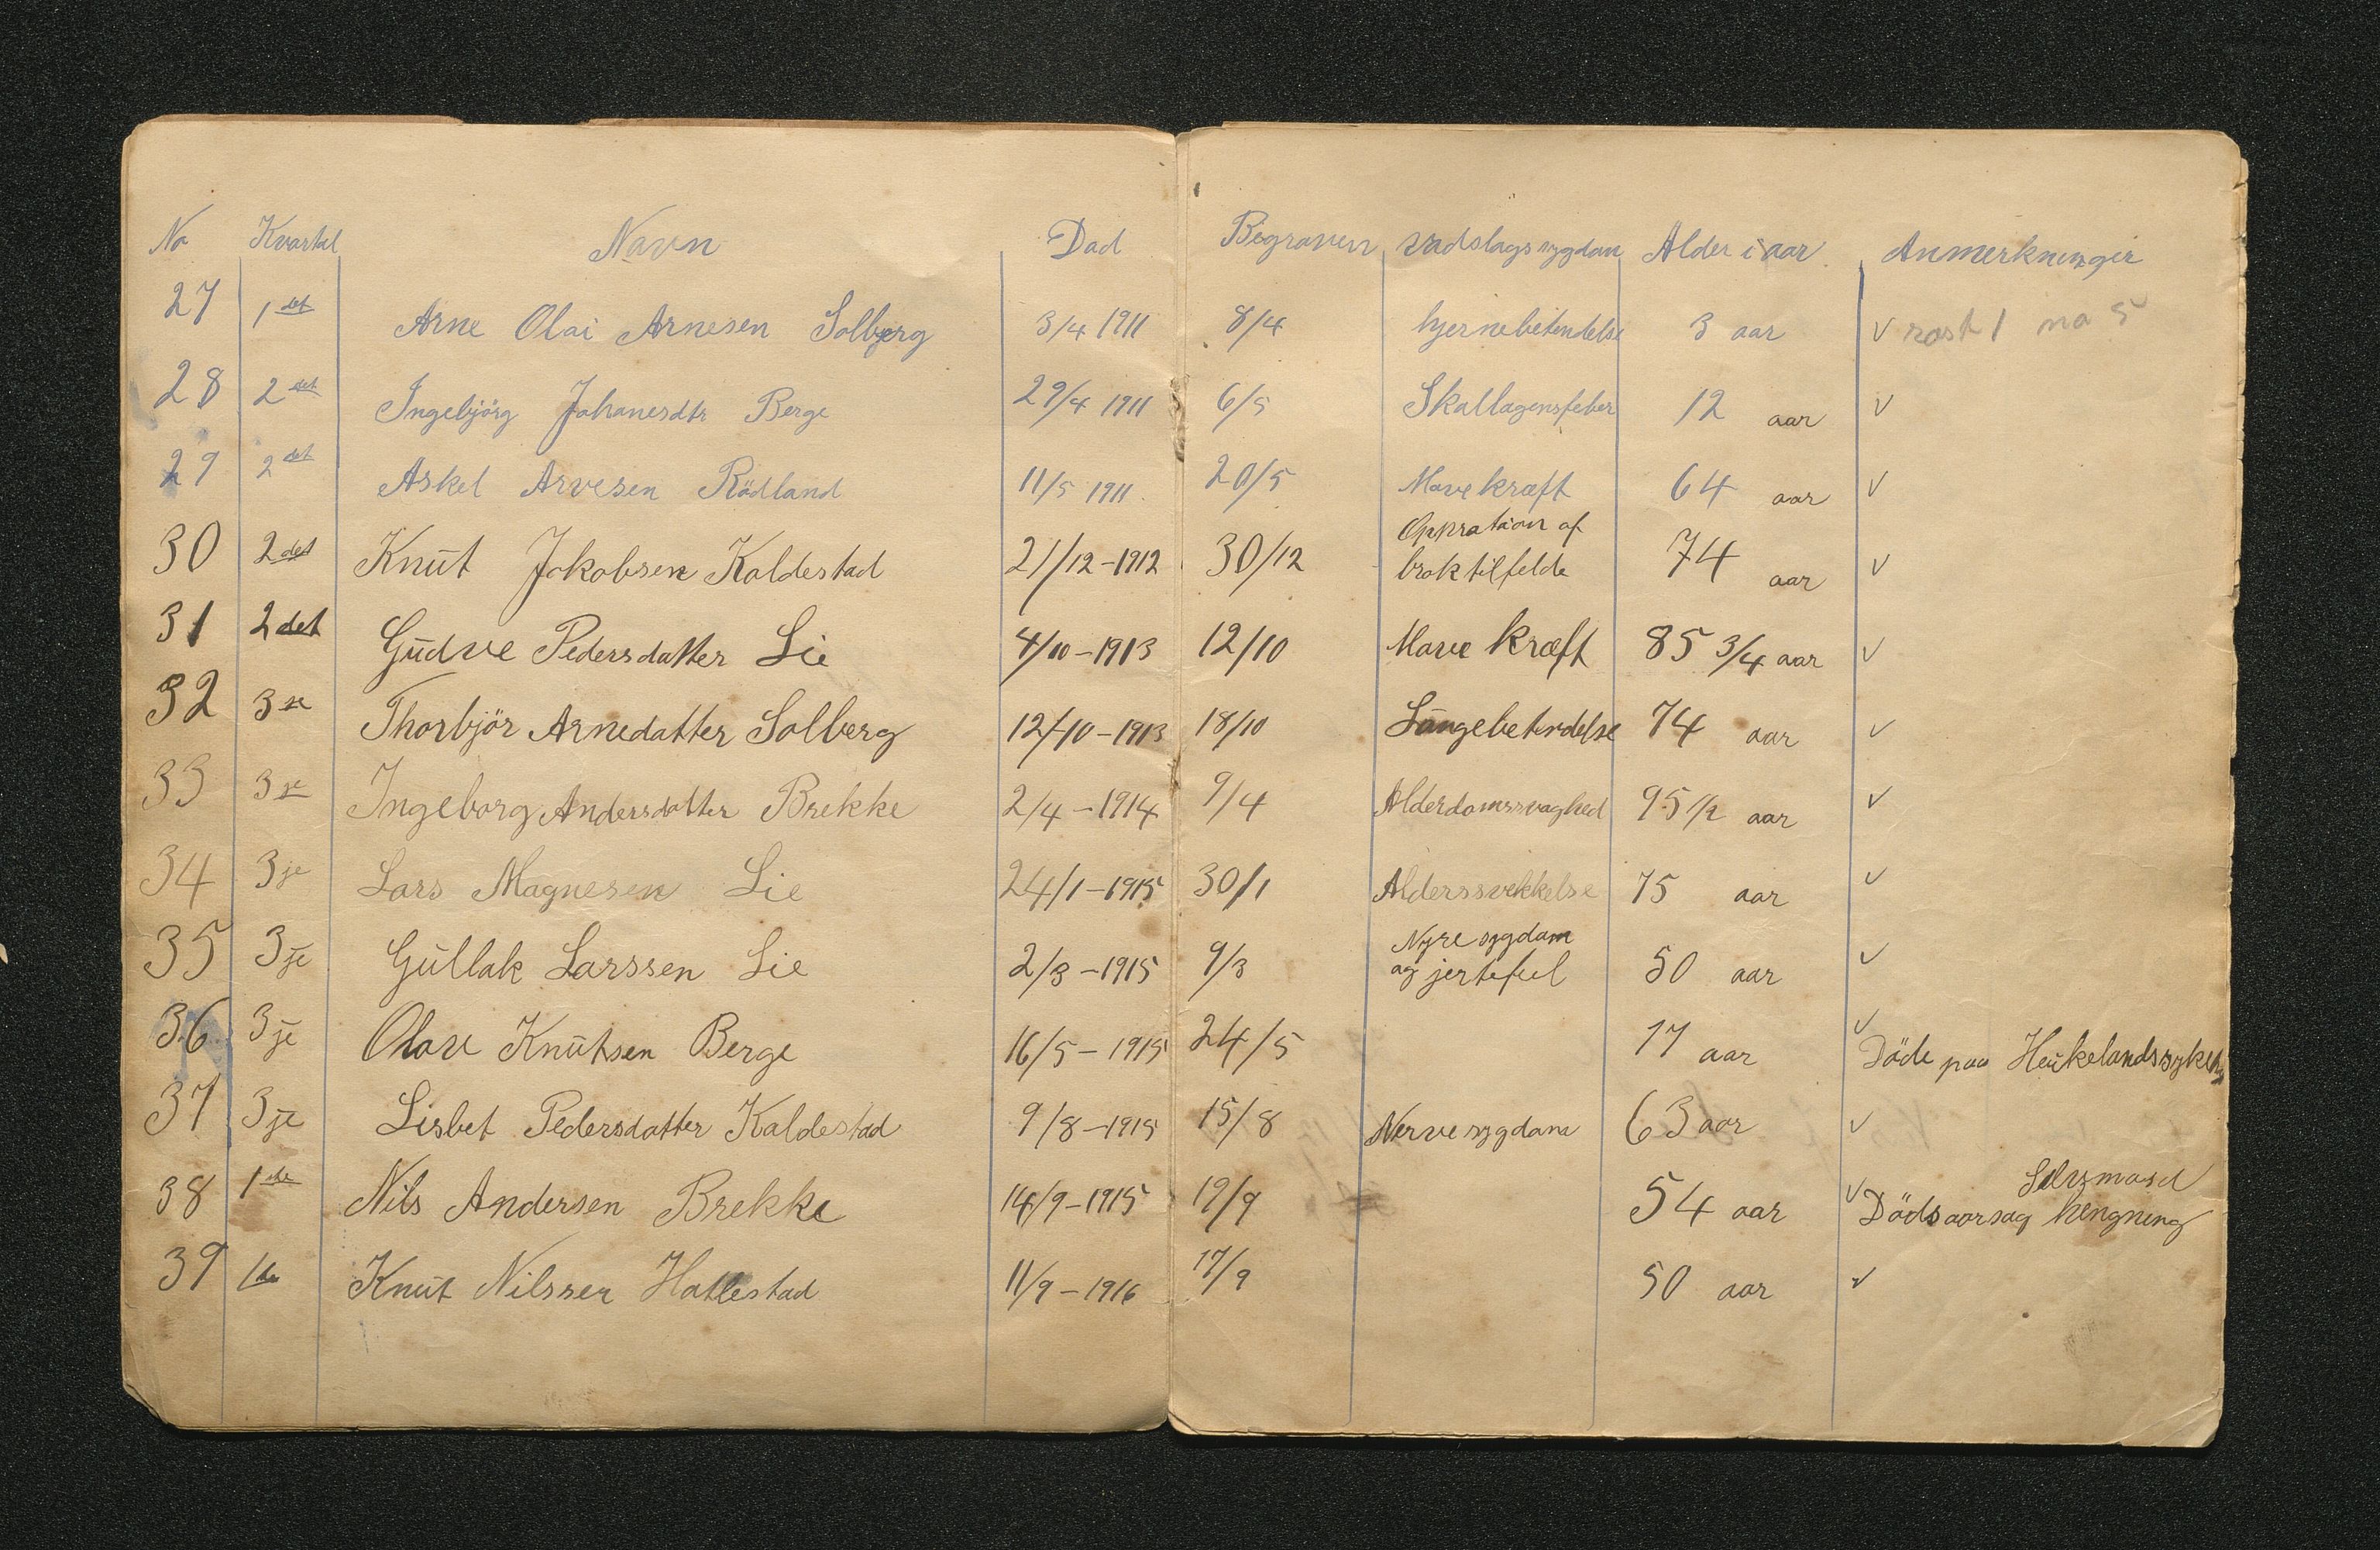 No Kvartal Navn Död Begraven Alder i aar Anmerkninger
27 1det Arne Olai Arnesen Solberg 3/4 1911 8/4 hjernebetendelse 3 aar √ rast 1 no 5
28 2det Ingebjörg Johanesdtr Berge 29/4 1911 6/5 Skallagensfeber 12 aar √
29 2det Askel Arvesen Rödland 11/5 1911 20/5 Mavekræft 64 aar √
30 2det Knut Jakobsen Kaldestad 21/12-1912 30/12 Oppration af broktilfelde 74 aar √
31 2det Gudve Pedersdatter Lie 4/10-1913 12/10 Mave kræft 85 3/4 aar √
32 3je Thorbjör Arnedatter Solberg 12/10-1913 18/10 Lungebetendelse 74 aar √
33 3je Ingeborg Andersdatter Brekke 2/4-1914 9/4 Alderdomssvaghed 95 1/2 aar √
34 3je Lars Magnesen Lie 24/1-1915 30/1 Alderssvekkelse 75 aar √
35 3je Gullak Larssen Lie 2/3-1915 9/3 Nyre sygdam og jertefeel 50 aar √
36 3je Olav Knutsen Berge 16/5-1915 24/5 17 aar √ Döde paa
37 3je Lisbet Pedersdatter Kaldestad 9/8-1915 15/8 Nervesygdam 63 aar √
38 1de Nils Andersen Brekke 14/9-1915 19/9 54 aar √ Dödsaarsag hengning
39 1de Knut Nilssen Hatlestad 11/9-1916 17/9 50 aar √